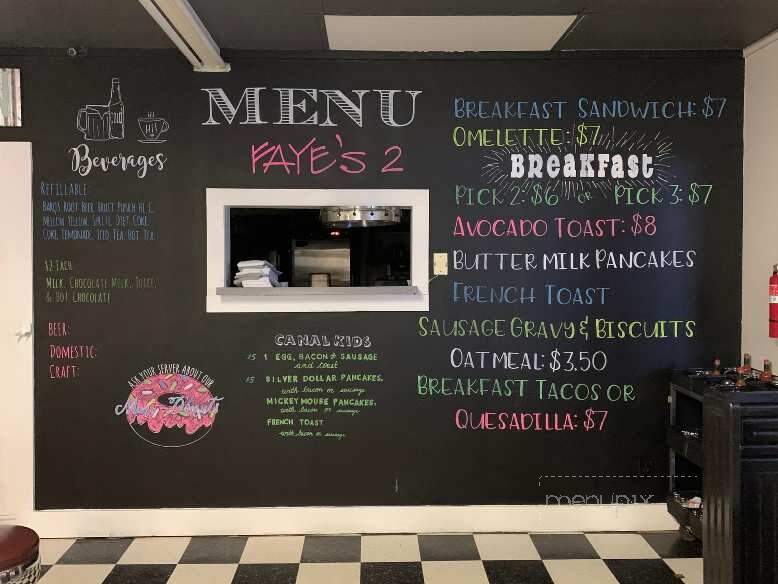 MENU
FAYE'S 2
Beverages
REFILLABLE
BARQS ROOT BEER, FRUIT PUNCH HI C,
MELLOW YELLOW, SPRITE, DIET COKE,
COKE, LEMONADE, ICED TEA, HOT TEA
$2 EACH
MILK, CHOCOLATE MILK, JUICE,
& HOT CHOCOLATE
BEER:
DOMESTIC:
CRAFT:
ASK YOUR SERVER ABOUT OUR
Donuts
CANAL KIDS
$5 1 EGG, BACON & SAUSAGE
and toast
$5 SILVER DOLLAR PANCAKES,
with bacon or sausage
MICKEY MOUSE PANCAKES,
with bacon or sausage
FRENCH TOAST
with bacon or sausage
BREAKFAST SANDWICH: $7
OMELETTE: $7
BREAKFAST
PICK 2: $6 OR PICK 3: $7
AVOCADO TOAST: $8
BUTTER MILK PANCAKES
FRENCH TOAST
SAUSAGE GRAVY & BISCUITS
OATMEAL: $3.50
BREAKFAST TACOS OR
QUESADILLA: $7
menupix